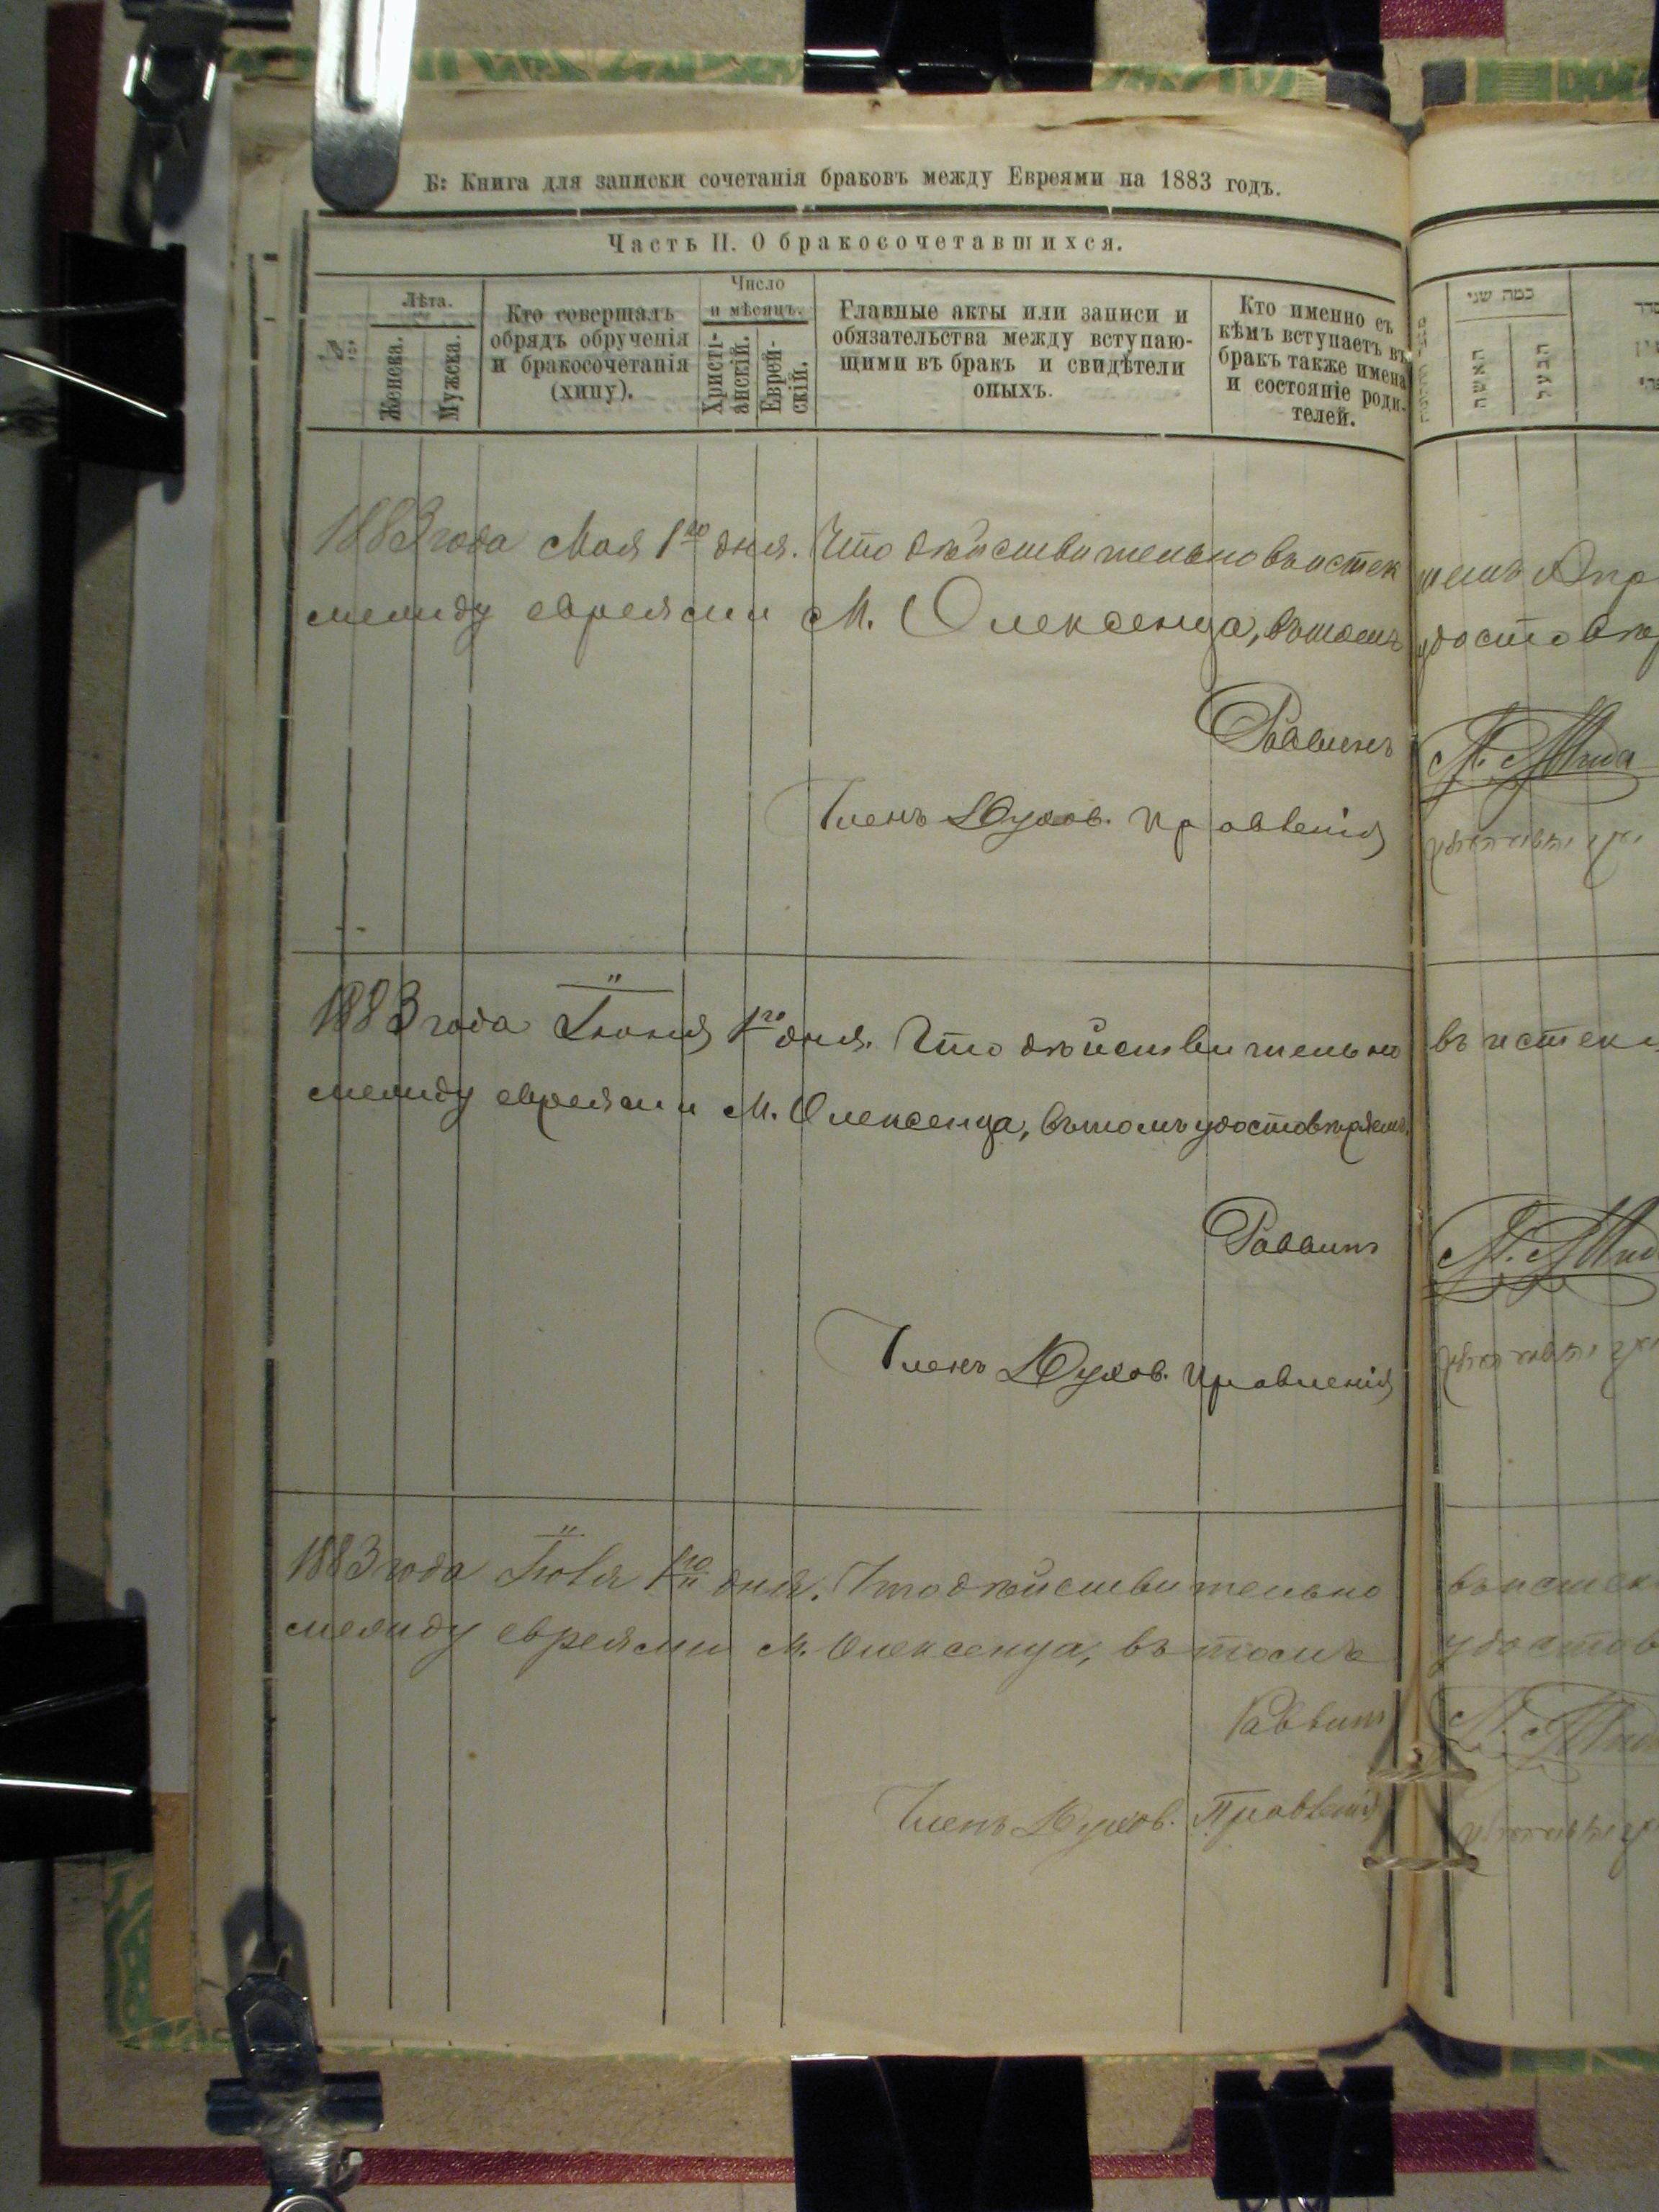 Б: Книга для записки сочетанія браковъ между Евреями на 1883 годъ.
Часть II. О бракосочетавшихся.
№
Лѣта.
Женска.
Мужска.
Кто совершалъ
обрядъ обрученія
и бракосочетанія
(хипу).
Число
и мѣсяцъ.
Христі-
анскій.
Еврей-
скій.
Главные акты или записи и
обязательства между вступаю-
щими въ бракъ и свидѣтели
оныхъ.
Кто именно съ
кѣмъ вступаетъ въ
бракъ также имена
и состояніе роди-
телей.
כמה שני
האשה
הבעל
1883 года Мая 1го дня. Что дѣйствительно въ истек
между евреями М. Олексенца, въ томъ
Раввинъ
Членъ Духов. правленія
1883 года Іюня 1го дня. Что дѣйствительно въ истек
между евреями М. Олексенца, въ томъ удостовѣряемъ.
Раввинъ
Членъ Духов. правленія
1883 года Іюля 1го дня. Что дѣйствительно въ истек
между евреями М. Олексенца, въ томъ удостов
Раввинъ
Членъ Духов. Правленія